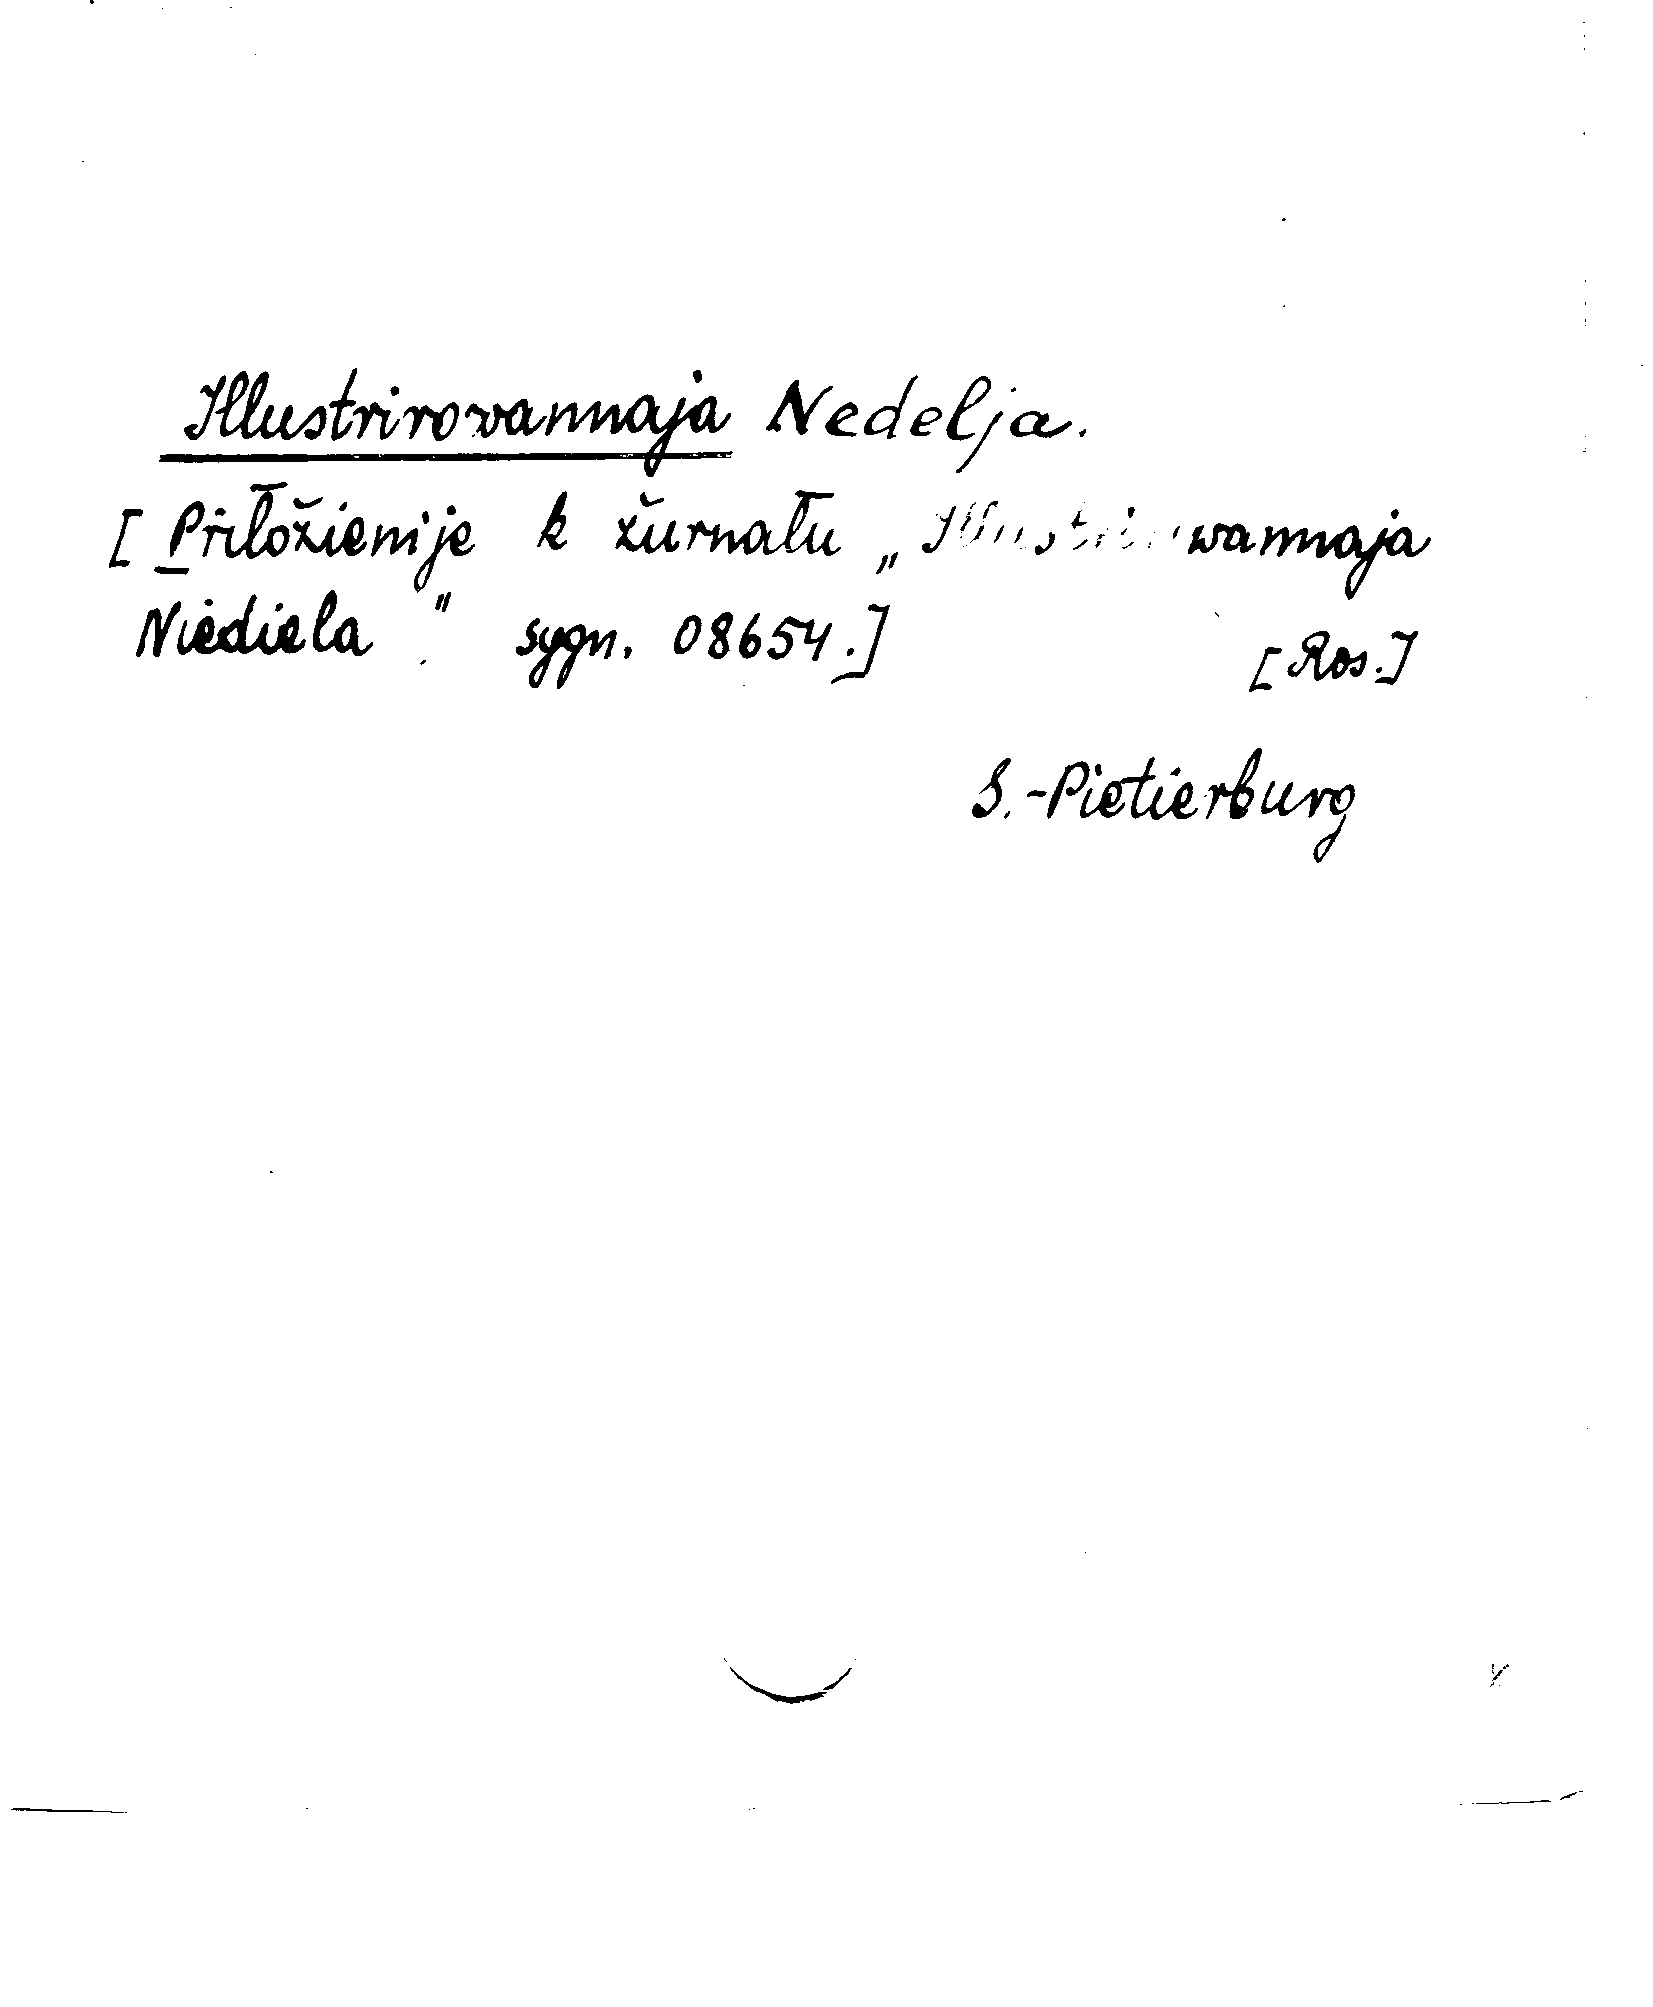 Illustrirovannaja Nedelja.
[Priłožienije k žurnału „Illustrirowannaja
Niediela" sygn. 08654.]
[Ros.]
S.-Pietierburg